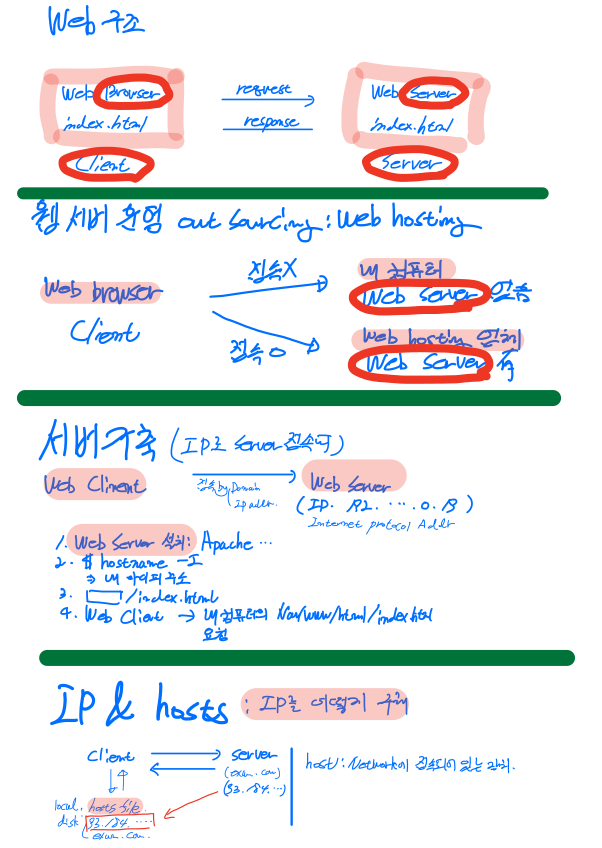 Web 구조
Web Browser
index.html
Client
request
response
Web Server
index.html
Server
웹 서버 운영 out sourcing : Web hosting
Web browser
Client
접속X
접속 O
내 컴퓨터
Web Server 없음
Web hosting 업체
Web Server 有
서버구축 (IP로 Server 접속시)
Web Client
접속 by Domain
Ip addr.
Web Server
Internet protocol Addr
1. Web Server 설치: Apache ...
2. $ hostname -I
⇒ 내 아이피 주소
3. /index.html
4. Web Client → 내 컴퓨터의 /var/www/html/index.html
요청
IP & hosts : IP를 어떻게
Client
server
(exam.com)
(93.184....)
local
disk
hosts file
93.184.....
exam.com.
host : Network에 접속되어 있는 장치.